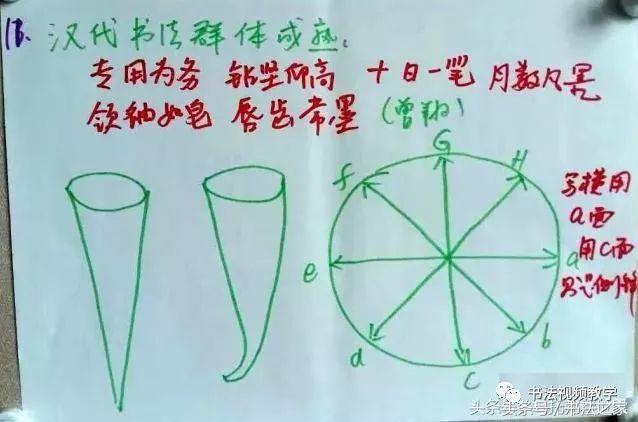 汉代书法群体成熟.
专用为务 钻坚仰高 十日一笔 月数丸墨
领袖如皂 唇齿常墨 (曾翔)
G
f
H
写横用
a面
e
a
用C面
侧锋
d
b
C
书法视频教学
书法之家